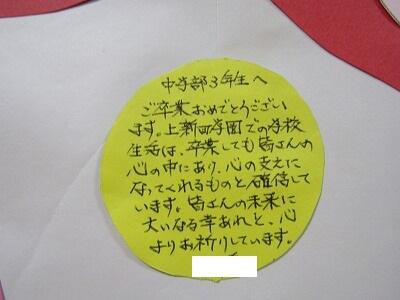 中学部3年生へ
ご卒業おめでとうござい
ます。上新田学園での学校
生活は、卒業しても皆さんの
心の中にあり、心の支えに
なってくれるものと確信して
います。皆さんの未来に
大いなる幸あれと、心
よりお祈りしています。